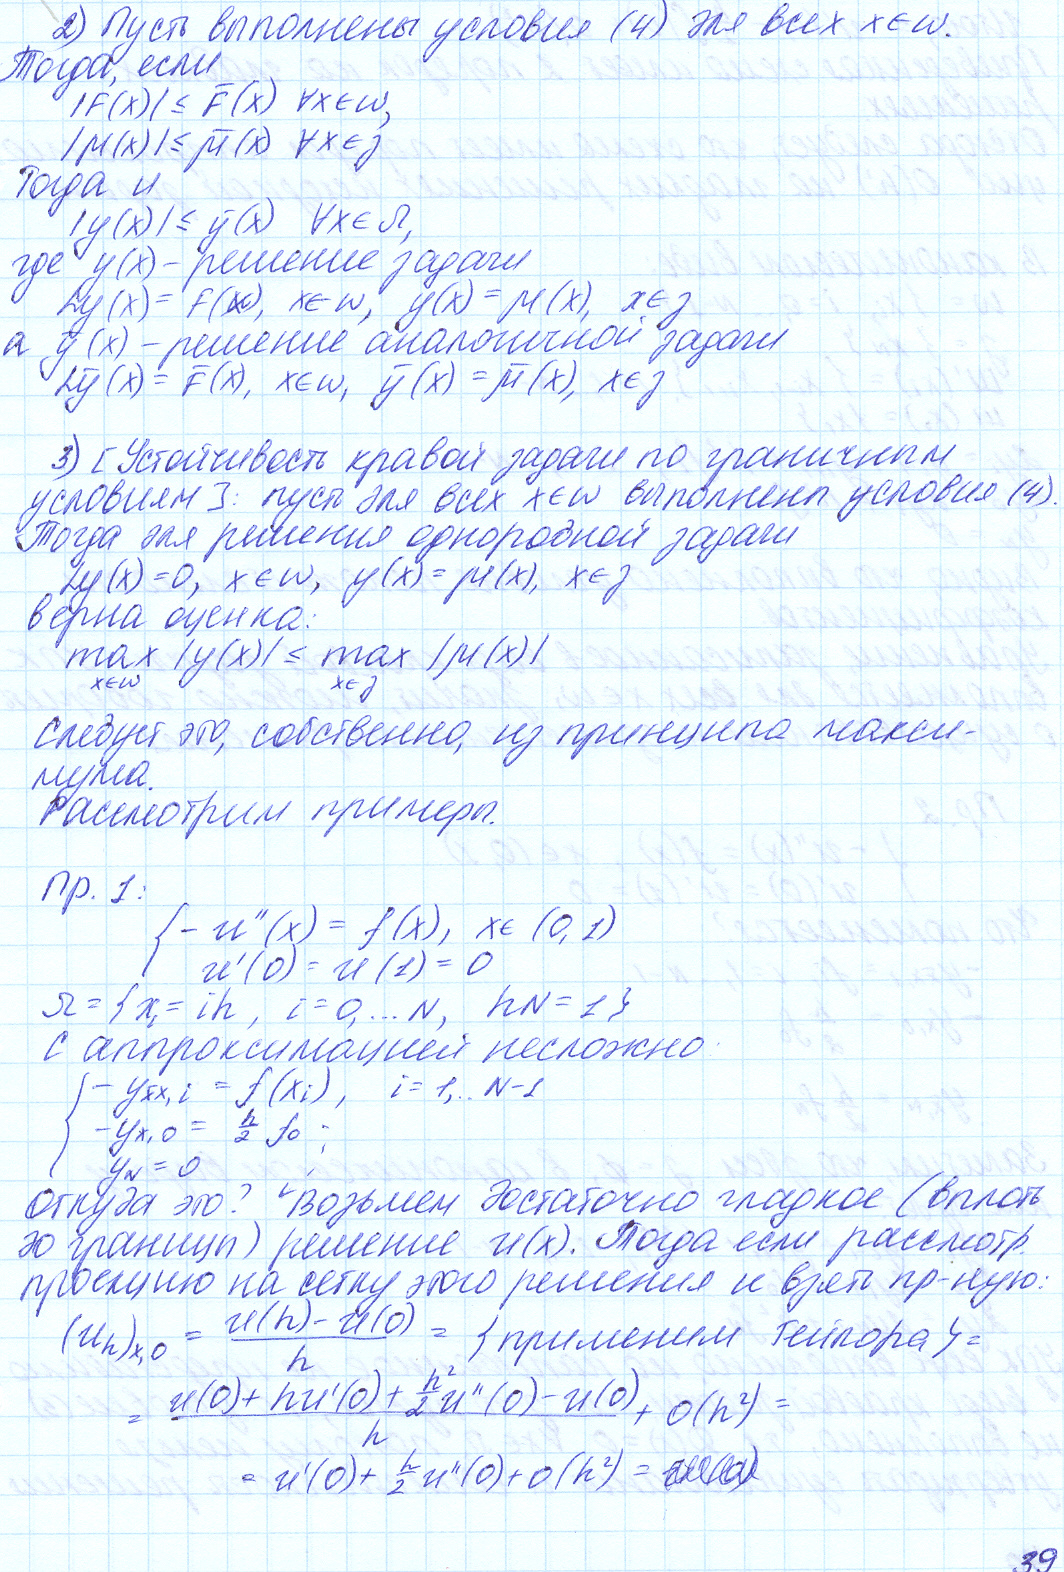 2) Пусть выполнены условия (4) для всех x∈ω.
Тогда, если
|F(x)| ≤ F̄(x) ∀x∈ω,
|μ(x)| ≤ μ̄(x) ∀x∈γ
Тогда и
|y(x)| ≤ ȳ(x) ∀x∈Ω,
где y(x) – решение задачи
Ly(x) = F(x), x∈ω, y(x) = μ(x), x∈γ
а ȳ(x) – решение аналогичной задачи
Lȳ(x) = F̄(x), x∈ω, ȳ(x) = μ̄(x), x∈γ
3) [Устойчивость краевой задачи по граничным
условиям]: пусть для всех x∈ω выполнены условия (4).
Тогда для решения однородной задачи
Ly(x) = 0, x∈ω, y(x) = μ(x), x∈γ
верна оценка:
max |y(x)| ≤ max |μ(x)|
x∈ω x∈γ
Следует это, собственно, из принципа макси-
мума.
Рассмотрим примеры.
Пр. 1:
{ – u''(x) = f(x), x∈(0,1)
u'(0) = u(1) = 0
Ω = {xᵢ = ih, i=0,...N, hN=1}
С аппроксимацией несложно:
{ – y_x̄x,i = f(xᵢ), i=1,..N-1
– y_x,0 = h/2 f₀ ;
y_N = 0
Откуда это? Возьмем достаточно гладкое (вплоть
до границы) решение u(x). Тогда если рассмотр.
проекцию на сетку этого решения и взять пр-ную:
(u_h)_x,0 = (u(h) – u(0))/h = {применим Тейлора} =
= (u(0) + hu'(0) + h²/2 u''(0) – u(0))/h + O(h²) =
= u'(0) + h/2 u''(0) + O(h²) =
39